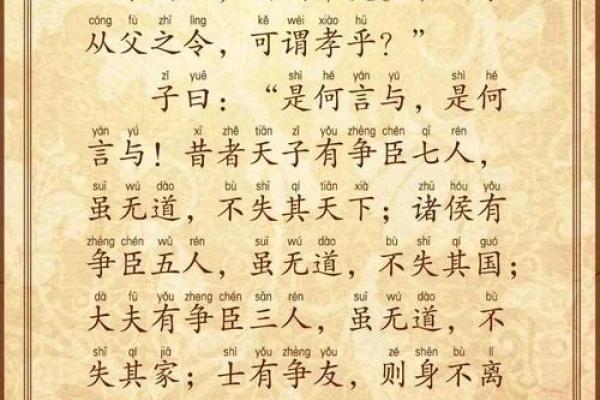 cóng fù zhī lìng kě wèi xiào hū
从父之令，可谓孝乎？”
zǐ yuē shì hé yán yú shì hé
子曰：“是何言与，是何
yán yú xī zhě tiān zǐ yǒu zhèng chén qī rén
言与！昔者天子有争臣七人，
suī wú dào bù shī qí tiān xià zhū hóu yǒu
虽无道，不失其天下；诸侯有
zhèng chén wǔ rén suī wú dào bù shī qí guó
争臣五人，虽无道，不失其国；
dà fū yǒu zheng chén sān rén suī wú dào bù
大夫有争臣三人，虽无道，不
shī qí jiā shì yǒu zhèng yǒu zé shēn bù lí
失其家；士有争友，则身不离